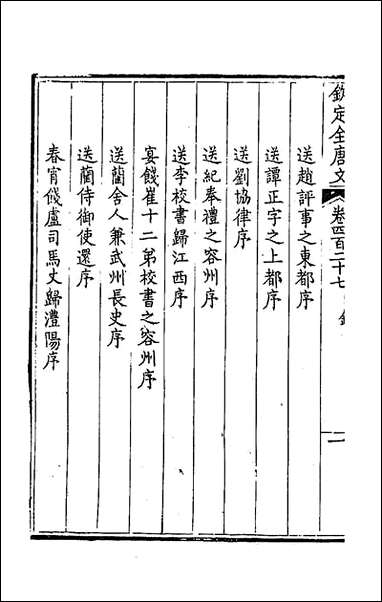 欽定全唐文 卷四百二十七 二
送趙評事之東都序
送譚正字之上都序
送劉協律序
送紀奉禮之容州序
送李校書歸江西序
宴餞崔十二弟校書之容州序
送藺舍人兼武州長史序
送藺侍御使還序
春宵餞盧司馬丈歸澧陽序